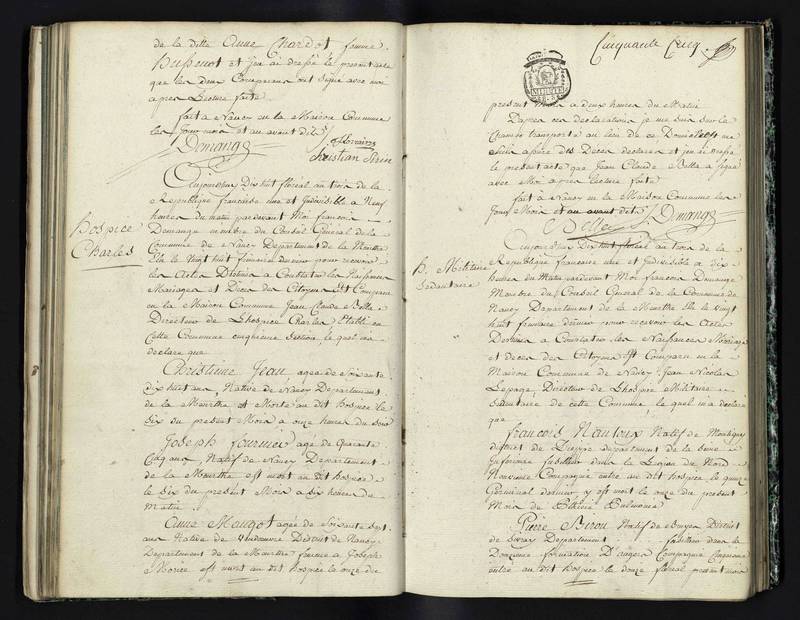 de la ditte Anne Chardot femme
Hussenot et j'en ai dressé le present acte
que les deux Comparans ont signé avec moi
apres Lecture faite
fait a Nancy en la Maison Commune
les jour mois et an avant dit
Domange
Christian
Aujourdhui Dix huit floréal an trois de la
République française une et Indivisible a Neuf
heures du matin pardevant Moi françois
Domange membre du Conseil Général de la
Commune de Nancy Departement de la Meurthe
Elu le vingt huit frimaire dernier pour recevoir
les Actes Destinés a Constater les Naissances
Mariages et Deces des Citoyens Est Comparu
en la Maison Commune Jean Claude Belle
Directeur de L'hospice Charles Etabli en
Cette Commune cinquieme Section, le quel m'a
declaré que
Hospice
Charles
Christinne Jean agée de Soixante
Dix huit ans, Native de Nancy Departement
de la Meurthe est Morte au dit hospice le
Six du present Mois a onze heures du Soir
Joseph fournier agé de Quarante
Cinq ans, Natif de Nancy Departement
de la Meurthe est mort au dit hospice
le dix du present Mois a six heures du
Matin
Anne Mangot agée de Soixante Sept
ans Native de Vandoeuvre District de Nancy
Departement de la Meurthe femme a Joseph
Morice est mort au dit hospice le onze du
Cinquante Cinq
present Mois a deux heures du Matin
Dapres ces declarations je me suis sur le
Champ transporté au lieu de ce Domicile ou me
Suis assuré des Deces declarés et j'en ai dressé
le present acte que Jean Claude Belle a signé
avec Moi apres lecture faite
fait a Nancy en la Maison Commune les
Jour Mois et an avant dits
Belle Domange
Aujourdhui Dix huit floréal an trois de la
République française une et Indivisible a Dix
heures du Matin pardevant Moi françois Domange
Membre du Conseil General de la Commune de
Nancy Departement de la Meurthe Elu le vingt
huit frimaire dernier pour recevoir les Actes
Destinés a Constater les Naissances Mariages
et deces des Citoyens Est Comparu en la
Maison Commune de Nancy Jean Nicolas
Lepage, Directeur de L'hospice Militaire
Sedentaire de cette Commune le quel m'a declaré
que
h. Militaire
Sedentaire
françois Nantoux Natif de Montigny
district de Dieppe departement de la Seine
Inferieure fusillier dans la Legion du Nord
Neuvieme Compagnie entré au dit hospice le quinze
Germinal dernier y est mort le onze du present
Mois de Phtisie Pulmonaire
Pierre Birou Natif de District
de Departement fusillier dans la
Douzieme formation D'angers Compagnie Cinquieme
entré au dit hospice le douze floréal present mois